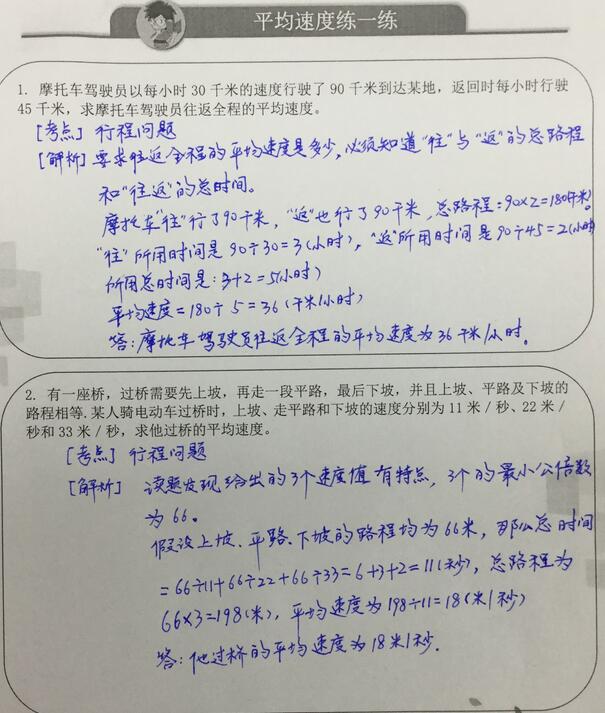 平均速度练一练
1. 摩托车驾驶员以每小时 30 千米的速度行驶了 90 千米到达某地，返回时每小时行驶
45 千米，求摩托车驾驶员往返全程的平均速度。
[考点] 行程问题
[解析] 要求往返全程的平均速度是多少，必须知道“往”与“返”的总路程
和“往返”的总时间。
摩托车“往”行了90千米，“返”也行了90千米，总路程=90×2=180(千米)。
“往”所用时间是 90÷30=3(小时)，“返”所用时间是90÷45=2(小时)
所用总时间是：3+2=5(小时)
平均速度=180÷5=36(千米/小时)
答：摩托车驾驶员往返全程的平均速度为36千米/小时。
2. 有一座桥，过桥需要先上坡，再走一段平路，最后下坡，并且上坡、平路及下坡的
路程相等.某人骑电动车过桥时，上坡、走平路和下坡的速度分别为 11 米／秒、22 米／
秒和 33 米／秒，求他过桥的平均速度。
[考点] 行程问题
[解析] 读题发现给出的3个速度值有特点，3个的最小公倍数
为66。
假设上坡、平路、下坡的路程均为66米，那么总时间
=66÷11+66÷22+66÷33=6+3+2=11(秒)，总路程为
66×3=198(米)，平均速度为198÷11=18(米/秒)
答：他过桥的平均速度为18米/秒.